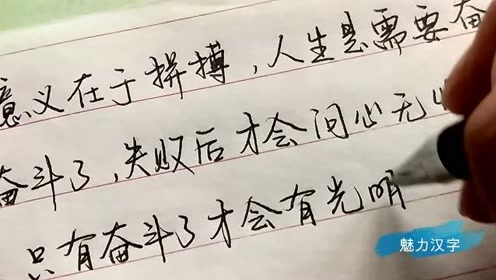 意义在于拼搏，人生是需要奋
奋斗了，失败后才会问心无
只有奋斗了才会有光明
魅力汉字